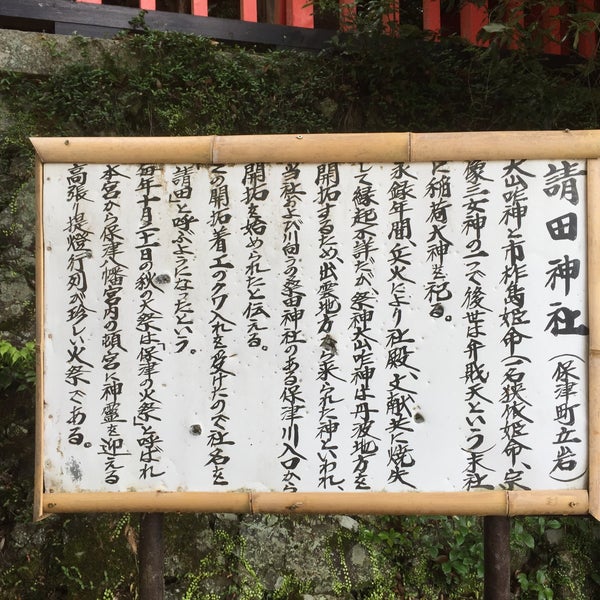 請田神社(保津町立岩)
大山咋神と市杵島姫命(一名狭依姫命、宗
像三女神の一つで後世は弁財天という)末社
に稲荷大神を祀る。
永録年間、兵火により社殿、文献共に焼失
して縁起不詳だが、祭神大山咋神は丹波地方を
開拓するため、出雲地方から来られた神といわれ、
当社および川向いの桑田神社のある保津川入口から
開拓を始められたと伝える。
この開拓着工のクワ入れを受けたので社名を
「請田」と呼ぶようになったという。
毎年十月二十一日の秋の大祭は「保津の火祭」と呼ばれ
本宮から保津八幡宮内の頓宮へ神霊を迎える
高張り提燈行列が珍しい火祭である。